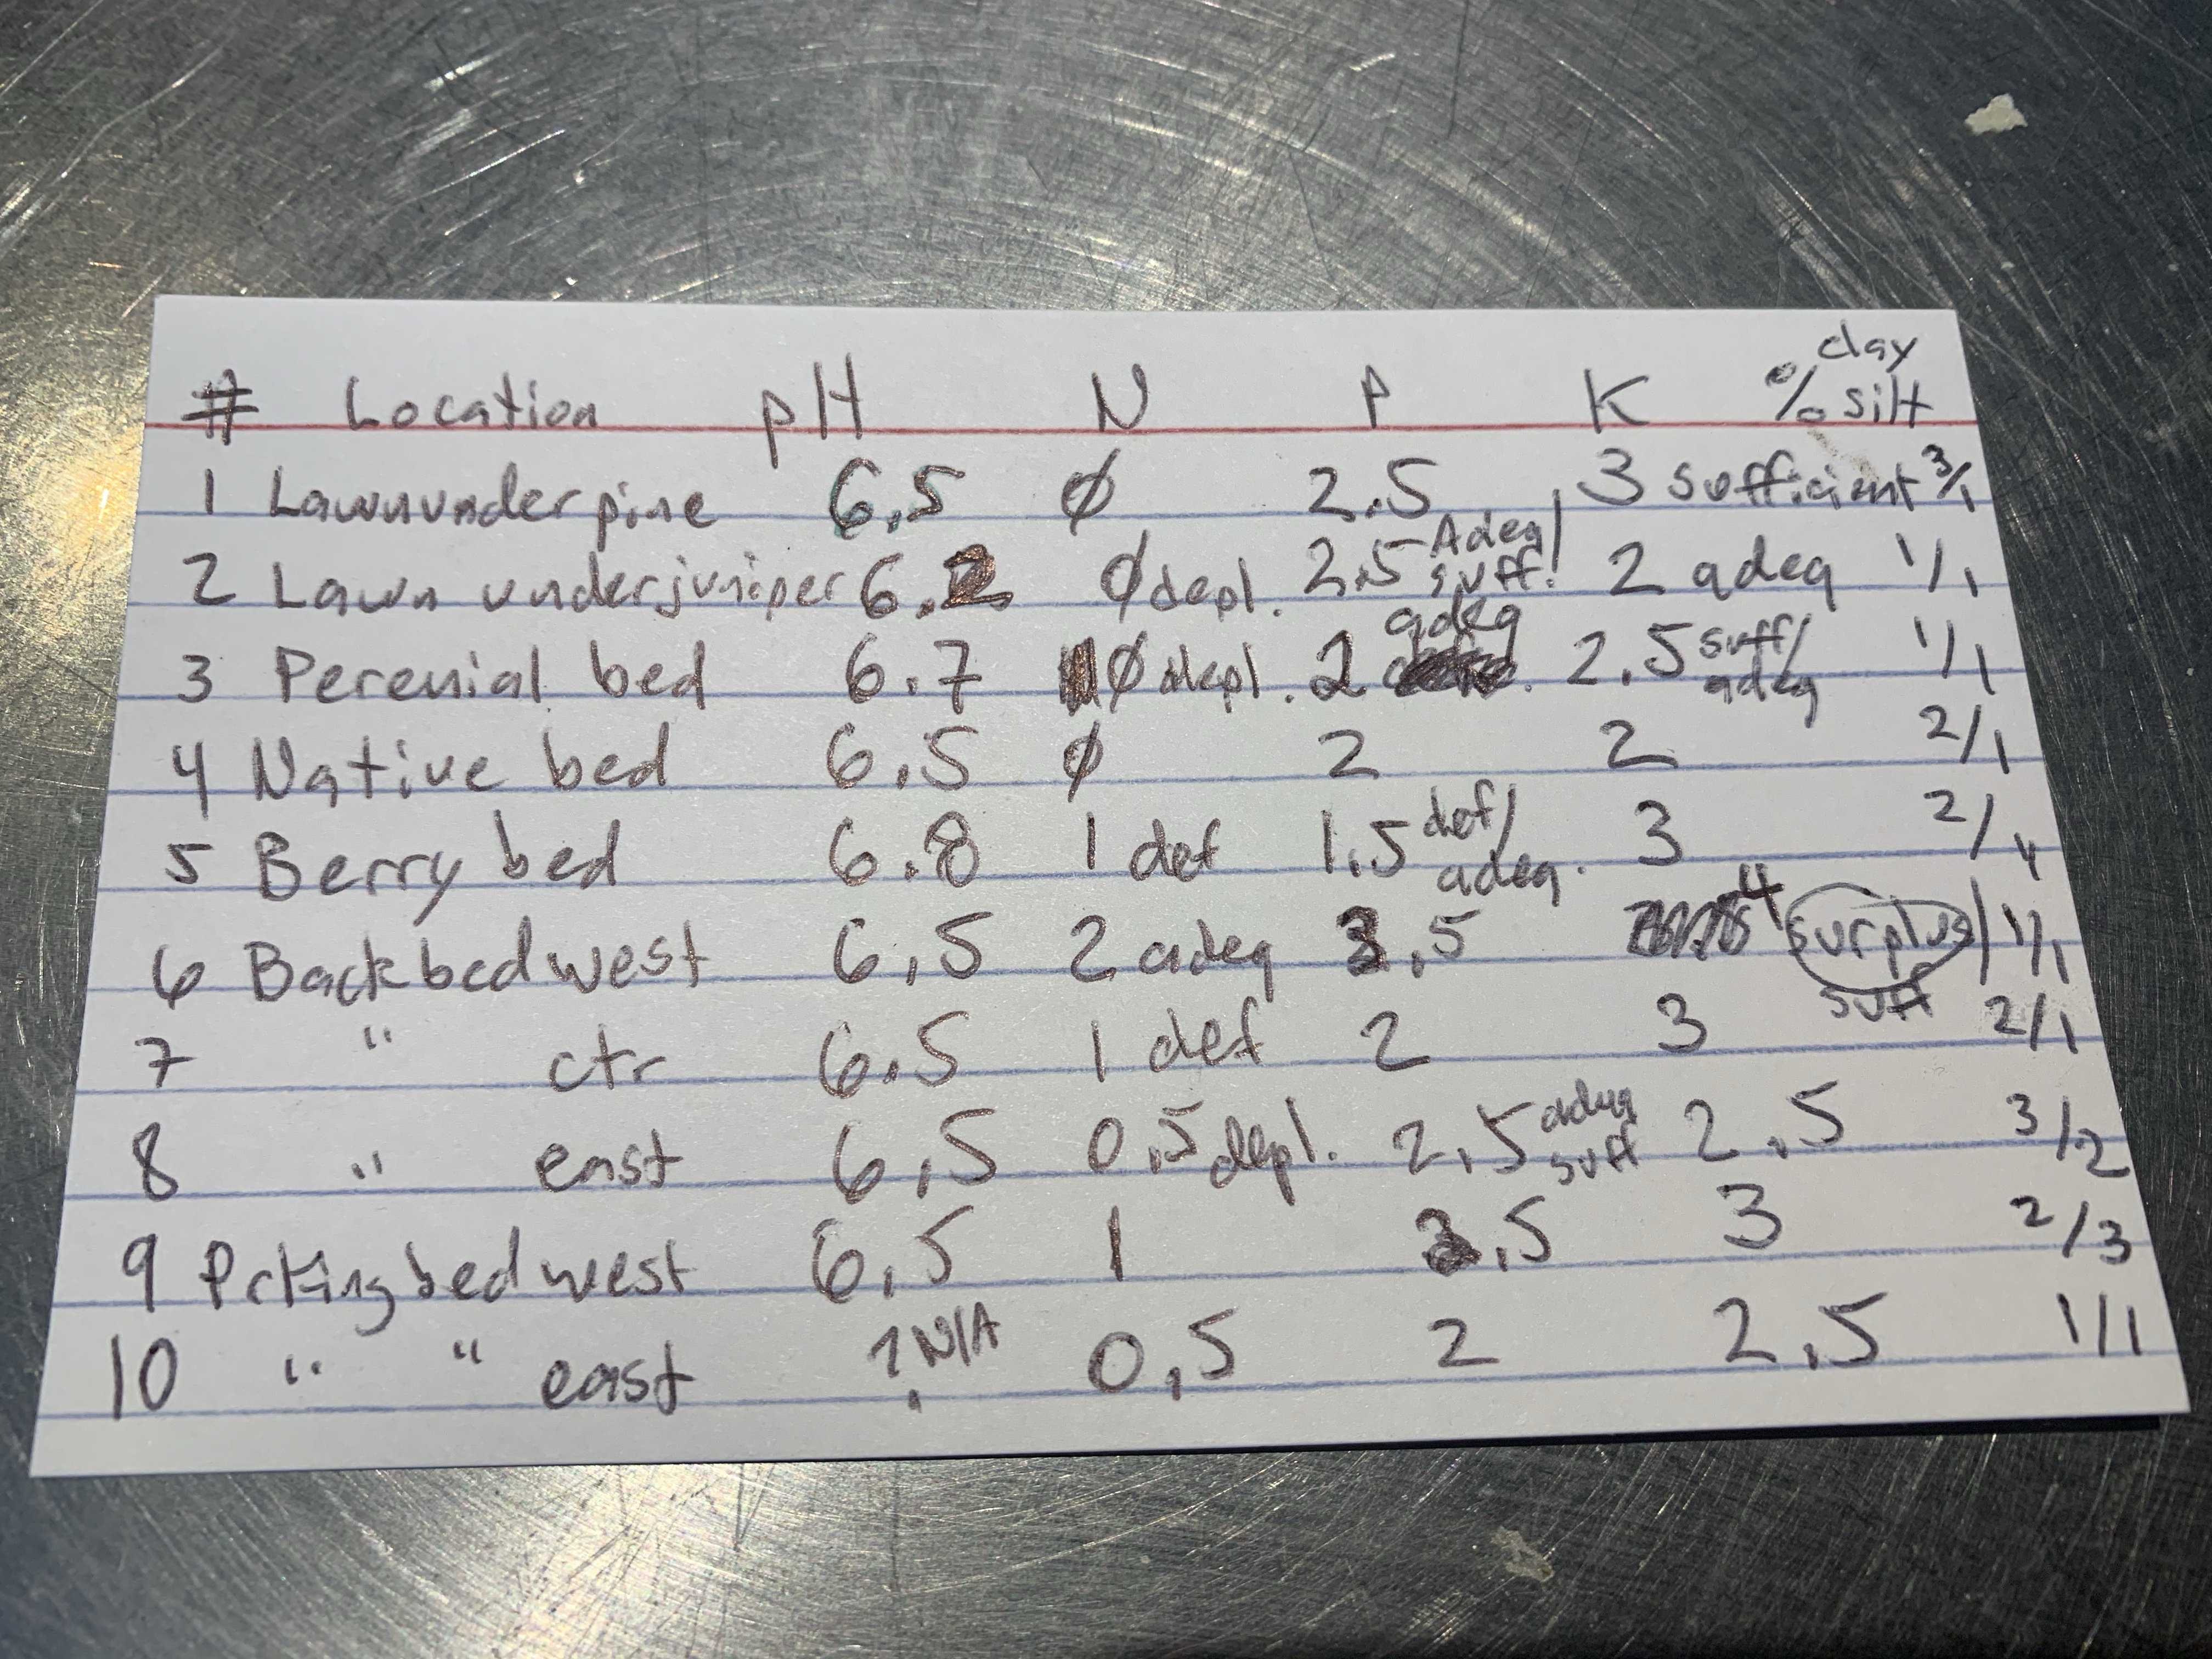 # Location pH N P K % clay silt
1 Lawn under pine 6.5 ∅ 2.5 3 sufficient 3/1
2 Lawn under juniper 6.2 ∅ depl. 2.5 Adeg/ suff. 2 adeq 1/1
3 Perenial bed 6.7 ∅ depl. 2 adeq 2.5 suff/ adeq 1/1
4 Native bed 6.5 ∅ 2 2 2/1
5 Berry bed 6.8 1 def 1.5 def/ adeq. 3 2/4
6 Back bed west 6.5 2 adeq .5 4 surplus/ suff 1/1
7 " ctr 6.5 1 def 2 3 2/1
8 " east 6.5 0.5 depl. 2.5 adeq suff 2.5 3/2
9 Prking bed west 6.5 1 .5 3 2/3
10 " " east ? N/A 0.5 2 2.5 1/1